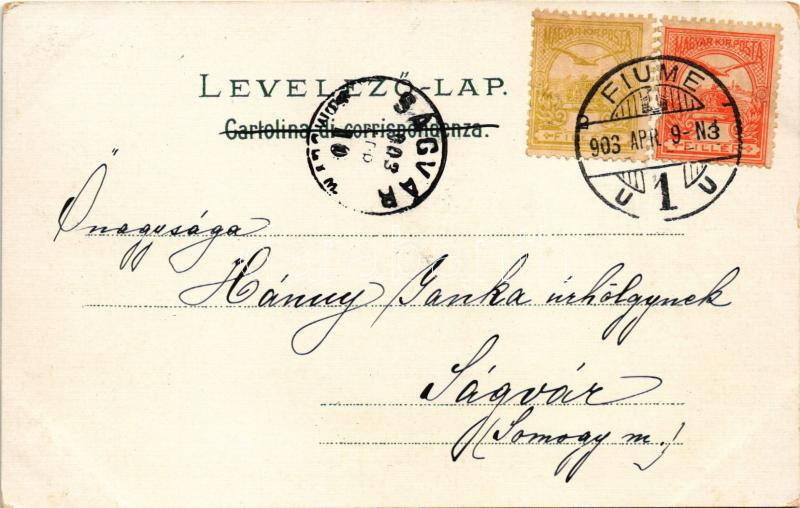 MAGYAR KIR. POSTA MAGYAR KIR. POSTA
FIUME
LEVELEZŐ-LAP.
SÁGVÁR
Cartolina di corrispondenza.
903 APR. 9-N3
903
10
FILLÉR
U 1 U
Őnagysága
Hánny Janka úrhölgynek
Ságvár
(Somogy m.)